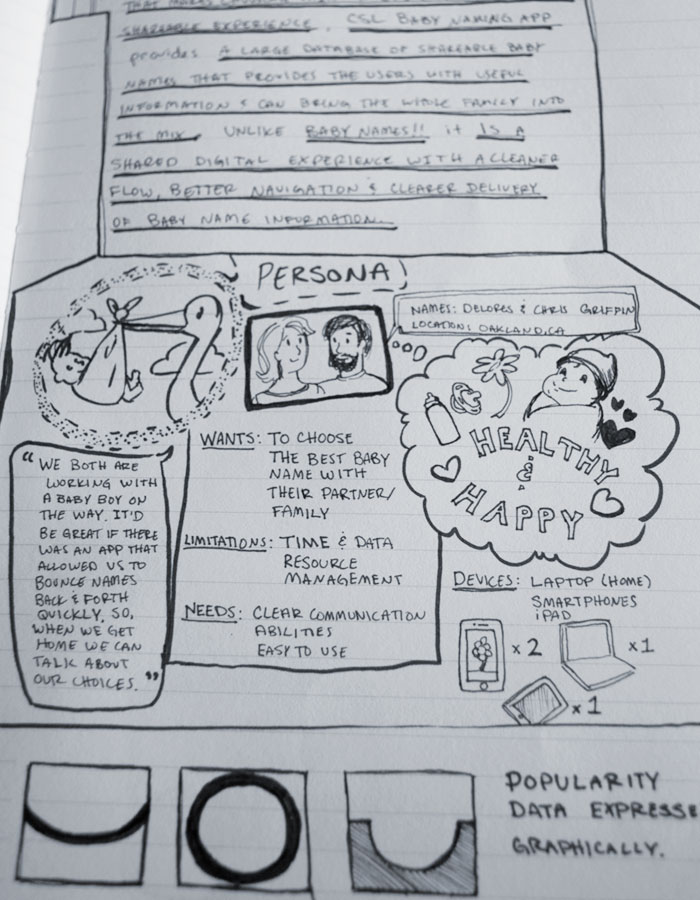 THAT MAKES
SHAREABLE EXPERIENCE. CSL BABY NAMING APP
provides A LARGE DATABASE OF SHAREABLE BABY
NAMES THAT PROVIDES THE USERS WITH USEFUL
INFORMATION & CAN BRING THE WHOLE FAMILY INTO
THE MIX. UNLIKE BABY NAMES!! it IS A
SHARED DIGITAL EXPERIENCE WITH A CLEANER
FLOW, BETTER NAVIGATION & CLEARER DELIVERY
OF BABY NAME INFORMATION.
PERSONA
NAMES: DELORES & CHRIS GRIFFIN
LOCATION: OAKLAND, CA
HEALTHY
&
HAPPY
"WE BOTH ARE
WORKING WITH
A BABY BOY ON
THE WAY. IT'D
BE GREAT IF THERE
WAS AN APP THAT
ALLOWED US TO
BOUNCE NAMES
BACK & FORTH
QUICKLY. SO,
WHEN WE GET
HOME WE CAN
TALK ABOUT
OUR CHOICES."
WANTS: TO CHOOSE
THE BEST BABY
NAME WITH
THEIR PARTNER/
FAMILY
LIMITATIONS: TIME & DATA
RESOURCE
MANAGEMENT
NEEDS: CLEAR COMMUNICATION
ABILITIES
EASY TO USE
DEVICES: LAPTOP (HOME)
SMARTPHONES
iPAD
x 2
x 1
x 1
POPULARITY
DATA EXPRESSE
GRAPHICALLY.